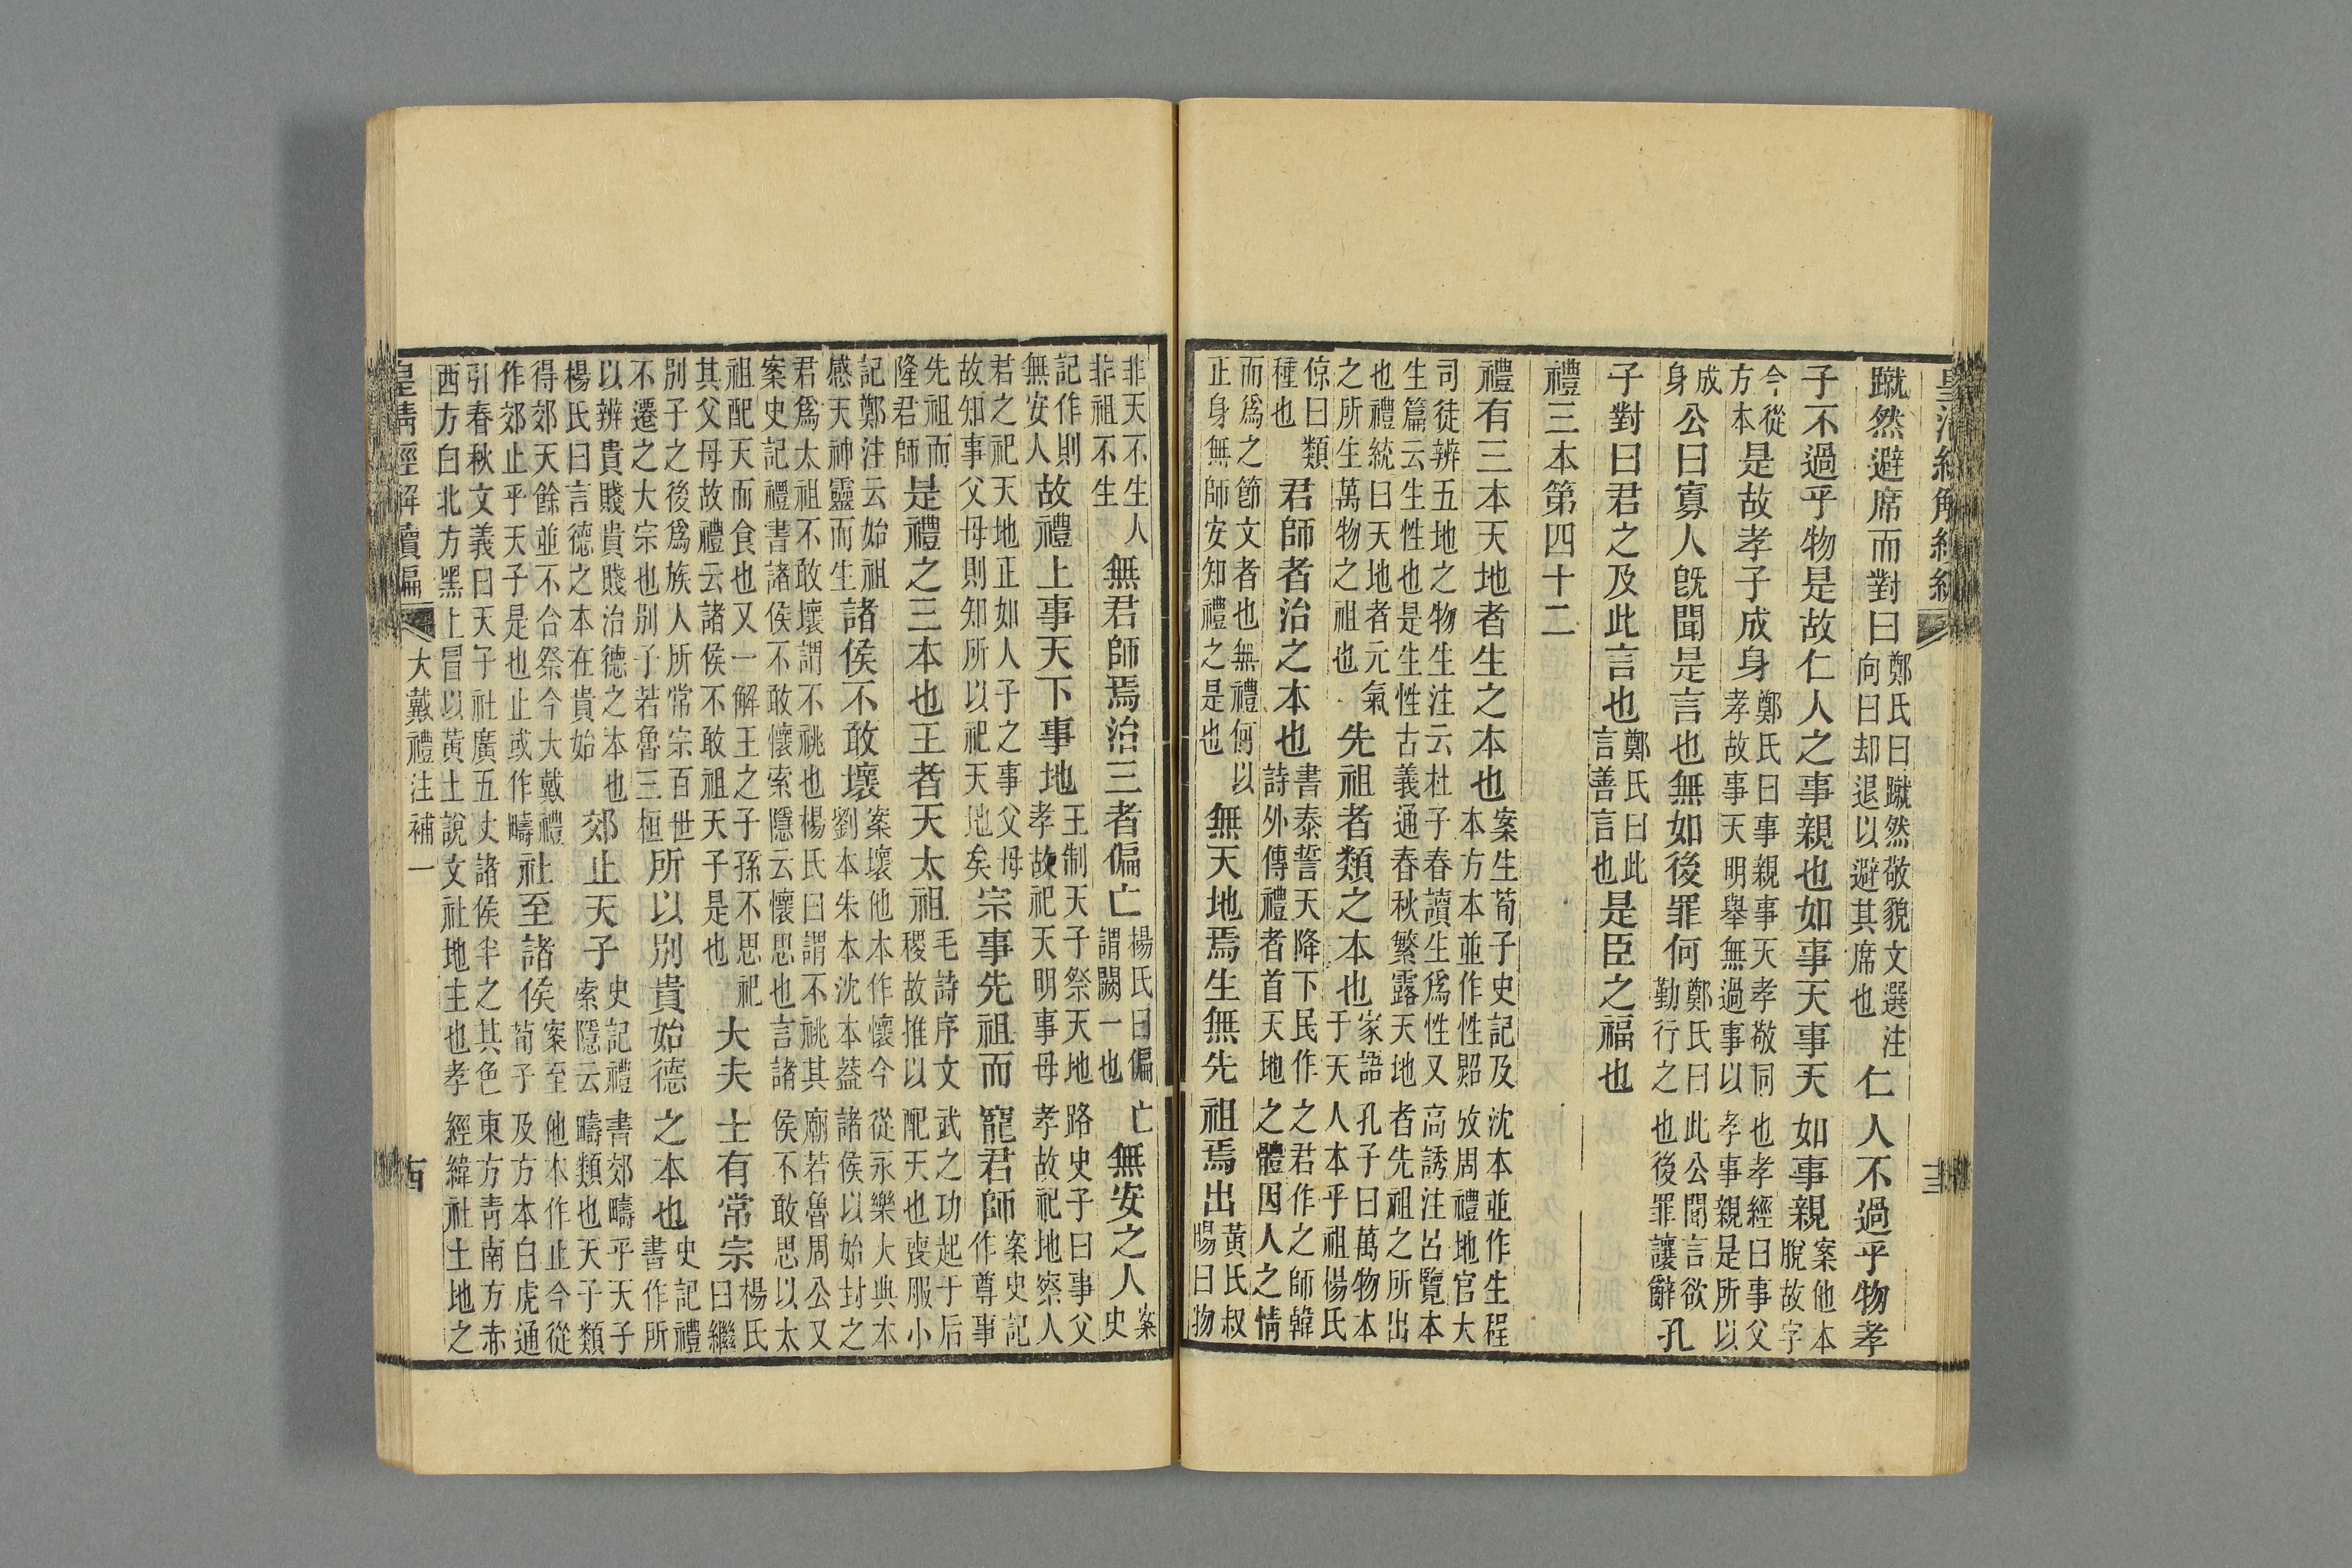 皇清經解續編 十三
蹴然避席而對曰
鄭氏曰蹴然敬貌文選注
向曰却退以避其席也
仁人不過乎物孝
子不過乎物是故仁人之事親也如事天事天如事親
案他本
脫故字
今從
方本
是故孝子成身
鄭氏曰事親事天孝敬同也孝經曰事父
孝故事天明舉無過事以孝事親是所以
成
身
公曰寡人旣聞是言也無如後罪何
鄭氏曰此公聞言欲
勤行之也後罪讓辭
孔
子對曰君之及此言也
鄭氏曰此
言善言也
是臣之福也
禮三本第四十二
禮有三本天地者生之本也
案生荀子史記及沈本並作生程
本方本並作性貺攷周禮地官大
司徒辨五地之物生注云杜子春讀生爲性又高誘注呂覽本
生篇云生性也是生性古義通春秋繁露天地者先祖之所出
也禮統曰天地者元氣
之所生萬物之祖也
先祖者類之本也
家語孔子曰萬物本
于天人本乎祖楊氏
倞曰類
種也
君師者治之本也
書泰誓天降下民作之君作之師韓
詩外傳禮者首天地之體因人之情
而爲之節文者也無禮何以
正身無師安知禮之是也
無天地焉生無先祖焉出
黃氏叔
暘曰物
非天不生人
非祖不生
無君師焉治三者偏亡
楊氏曰偏亡
謂闕一也
無安之人
案
史
記作則
無安人
故禮上事天下事地
王制天子祭天地路史子曰事父
孝故祀天明事母孝故祀地察人
君之祀天地正如人子之事父母
故知事父母則知所以祀天地矣
宗事先祖而寵君師
案史記
作尊事
先祖而
隆君師
是禮之三本也王者天太祖
毛詩序文武之功起于后
稷故推以配天也喪服小
記鄭注云始祖
感天神靈而生
諸侯不敢壞
案壞他本作懷今從永樂大典本
劉本朱本沈本葢諸侯以始封之
君爲太祖不敢壞謂不祧也楊氏曰謂不祧其廟若魯周公又
案史記禮書諸侯不敢懷索隱云懷思也言諸侯不敢思以太
祖配天而食也又一解王之子孫不思祀
其父母故禮云諸侯不敢祖天子是也
大夫士有常宗
楊氏
曰繼
別子之後爲族人所常宗百世
不遷之大宗也別子若魯三桓
所以別貴始德之本也
史記禮
書作所
以辨貴賤貴賤治德之本也
楊氏曰言德之本在貴始
郊止天子
史記禮書郊疇乎天子
索隱云疇類也天子類
得郊天餘並不合祭今大戴禮
作郊止乎天子是也止或作疇
社至諸侯
案至他本作止今從
荀子及方本白虎通
引春秋文義曰天子社廣五丈諸侯半之其色東方靑南方赤
西方白北方黑上冒以黃土說文社地主也孝經緯社土地之
皇清經解續編 大戴禮注補一 古